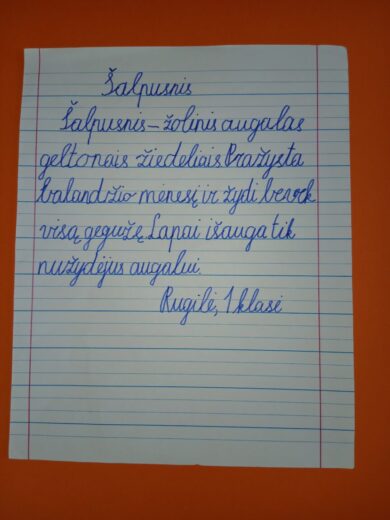 Šalpusnis
Šalpusnis – žolinis augalas
geltonais žiedeliais. Pražysta
balandžio mėnesį ir žydi beveik
visą gegužę. Lapai išauga tik
nužydėjus augalui.
Rugilė, 1 klasė